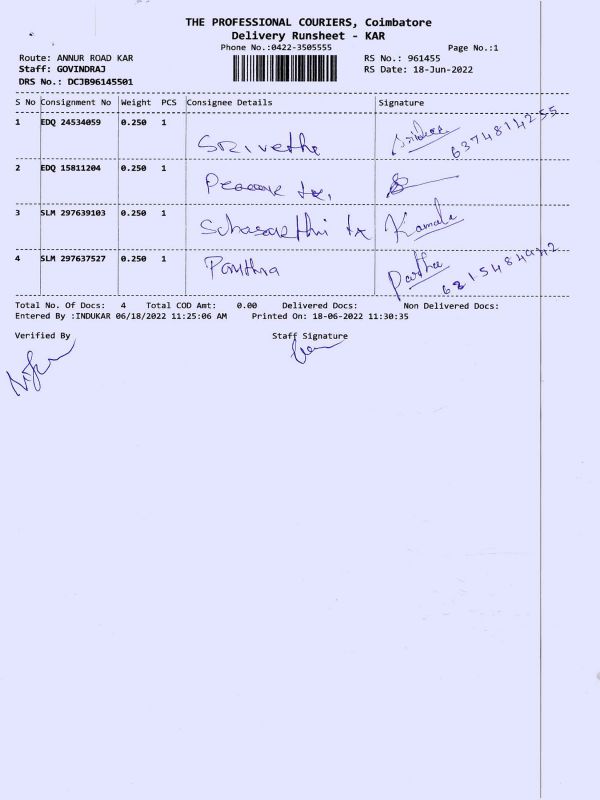 THE PROFESSIONAL COURIERS, Coimbatore
Delivery Runsheet - KAR
Phone No.:0422-3505555 Page No.:1
Route: ANNUR ROAD KAR RS No.: 961455
Staff: GOVINDRAJ RS Date: 18-Jun-2022
DRS No.: DCJB96145501
S No Consignment No Weight PCS Consignee Details Signature
1 EDQ 24534059 0.250 1
Srivetha 6374814255
2 EDQ 15811204 0.250 1
tex,
3 SLM 297639103 0.250 1
tx Kamala
4 SLM 297637527 0.250 1
Panthra Partha
Total No. Of Docs: 4 Total COD Amt: 0.00 Delivered Docs: Non Delivered Docs:
Entered By :INDUKAR 06/18/2022 11:25:06 AM Printed On: 18-06-2022 11:30:35
Verified By Staff Signature